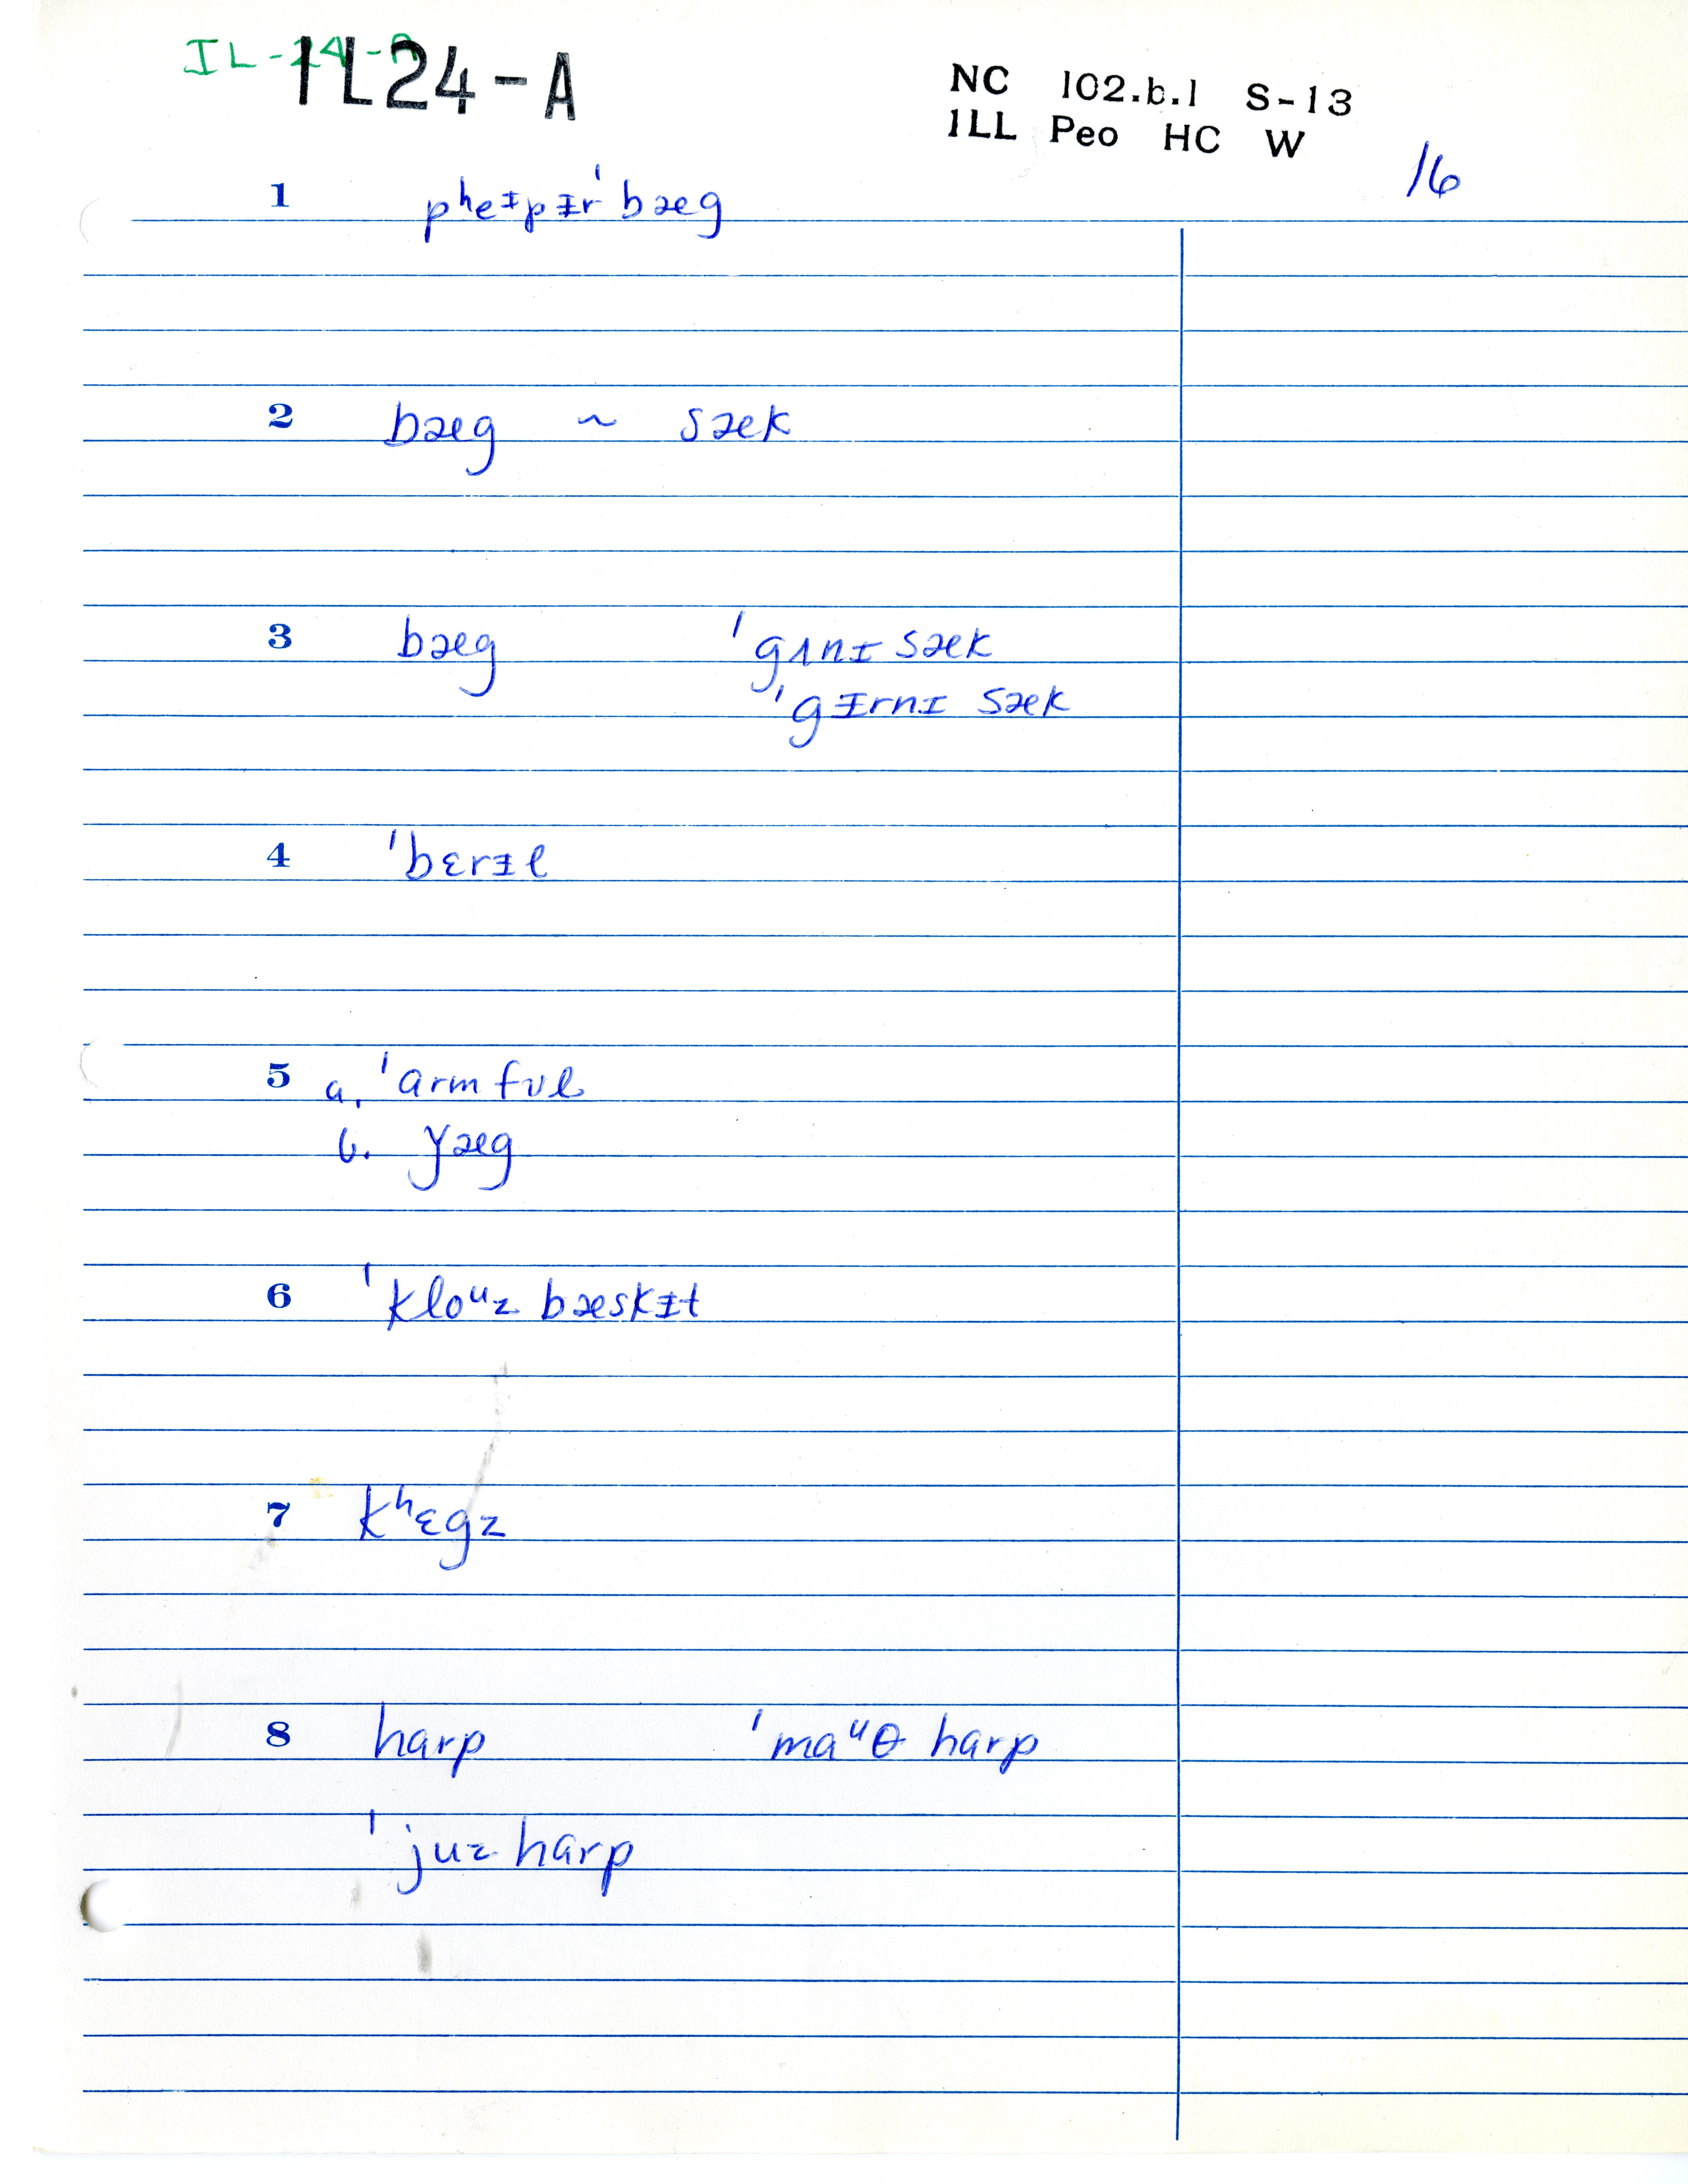 IL-24-A
IL24-A
NC 102.b.1 S-13
ILL Peo HC W
16
1 pʰeᵻpᵻrˈbæg
2 bæg ~ sæk
3 bæg ˈgʌnɪ sæk
ˈgᵻrnɪ sæk
4 ˈbɛrᵻl
5 a. ˈarm fʊl
b. ɣæg
6 ˈkloᵘz bæskᵻt
7 kʰɛgz
8 harp ˈmaᵘθ harp
ˈjuz harp